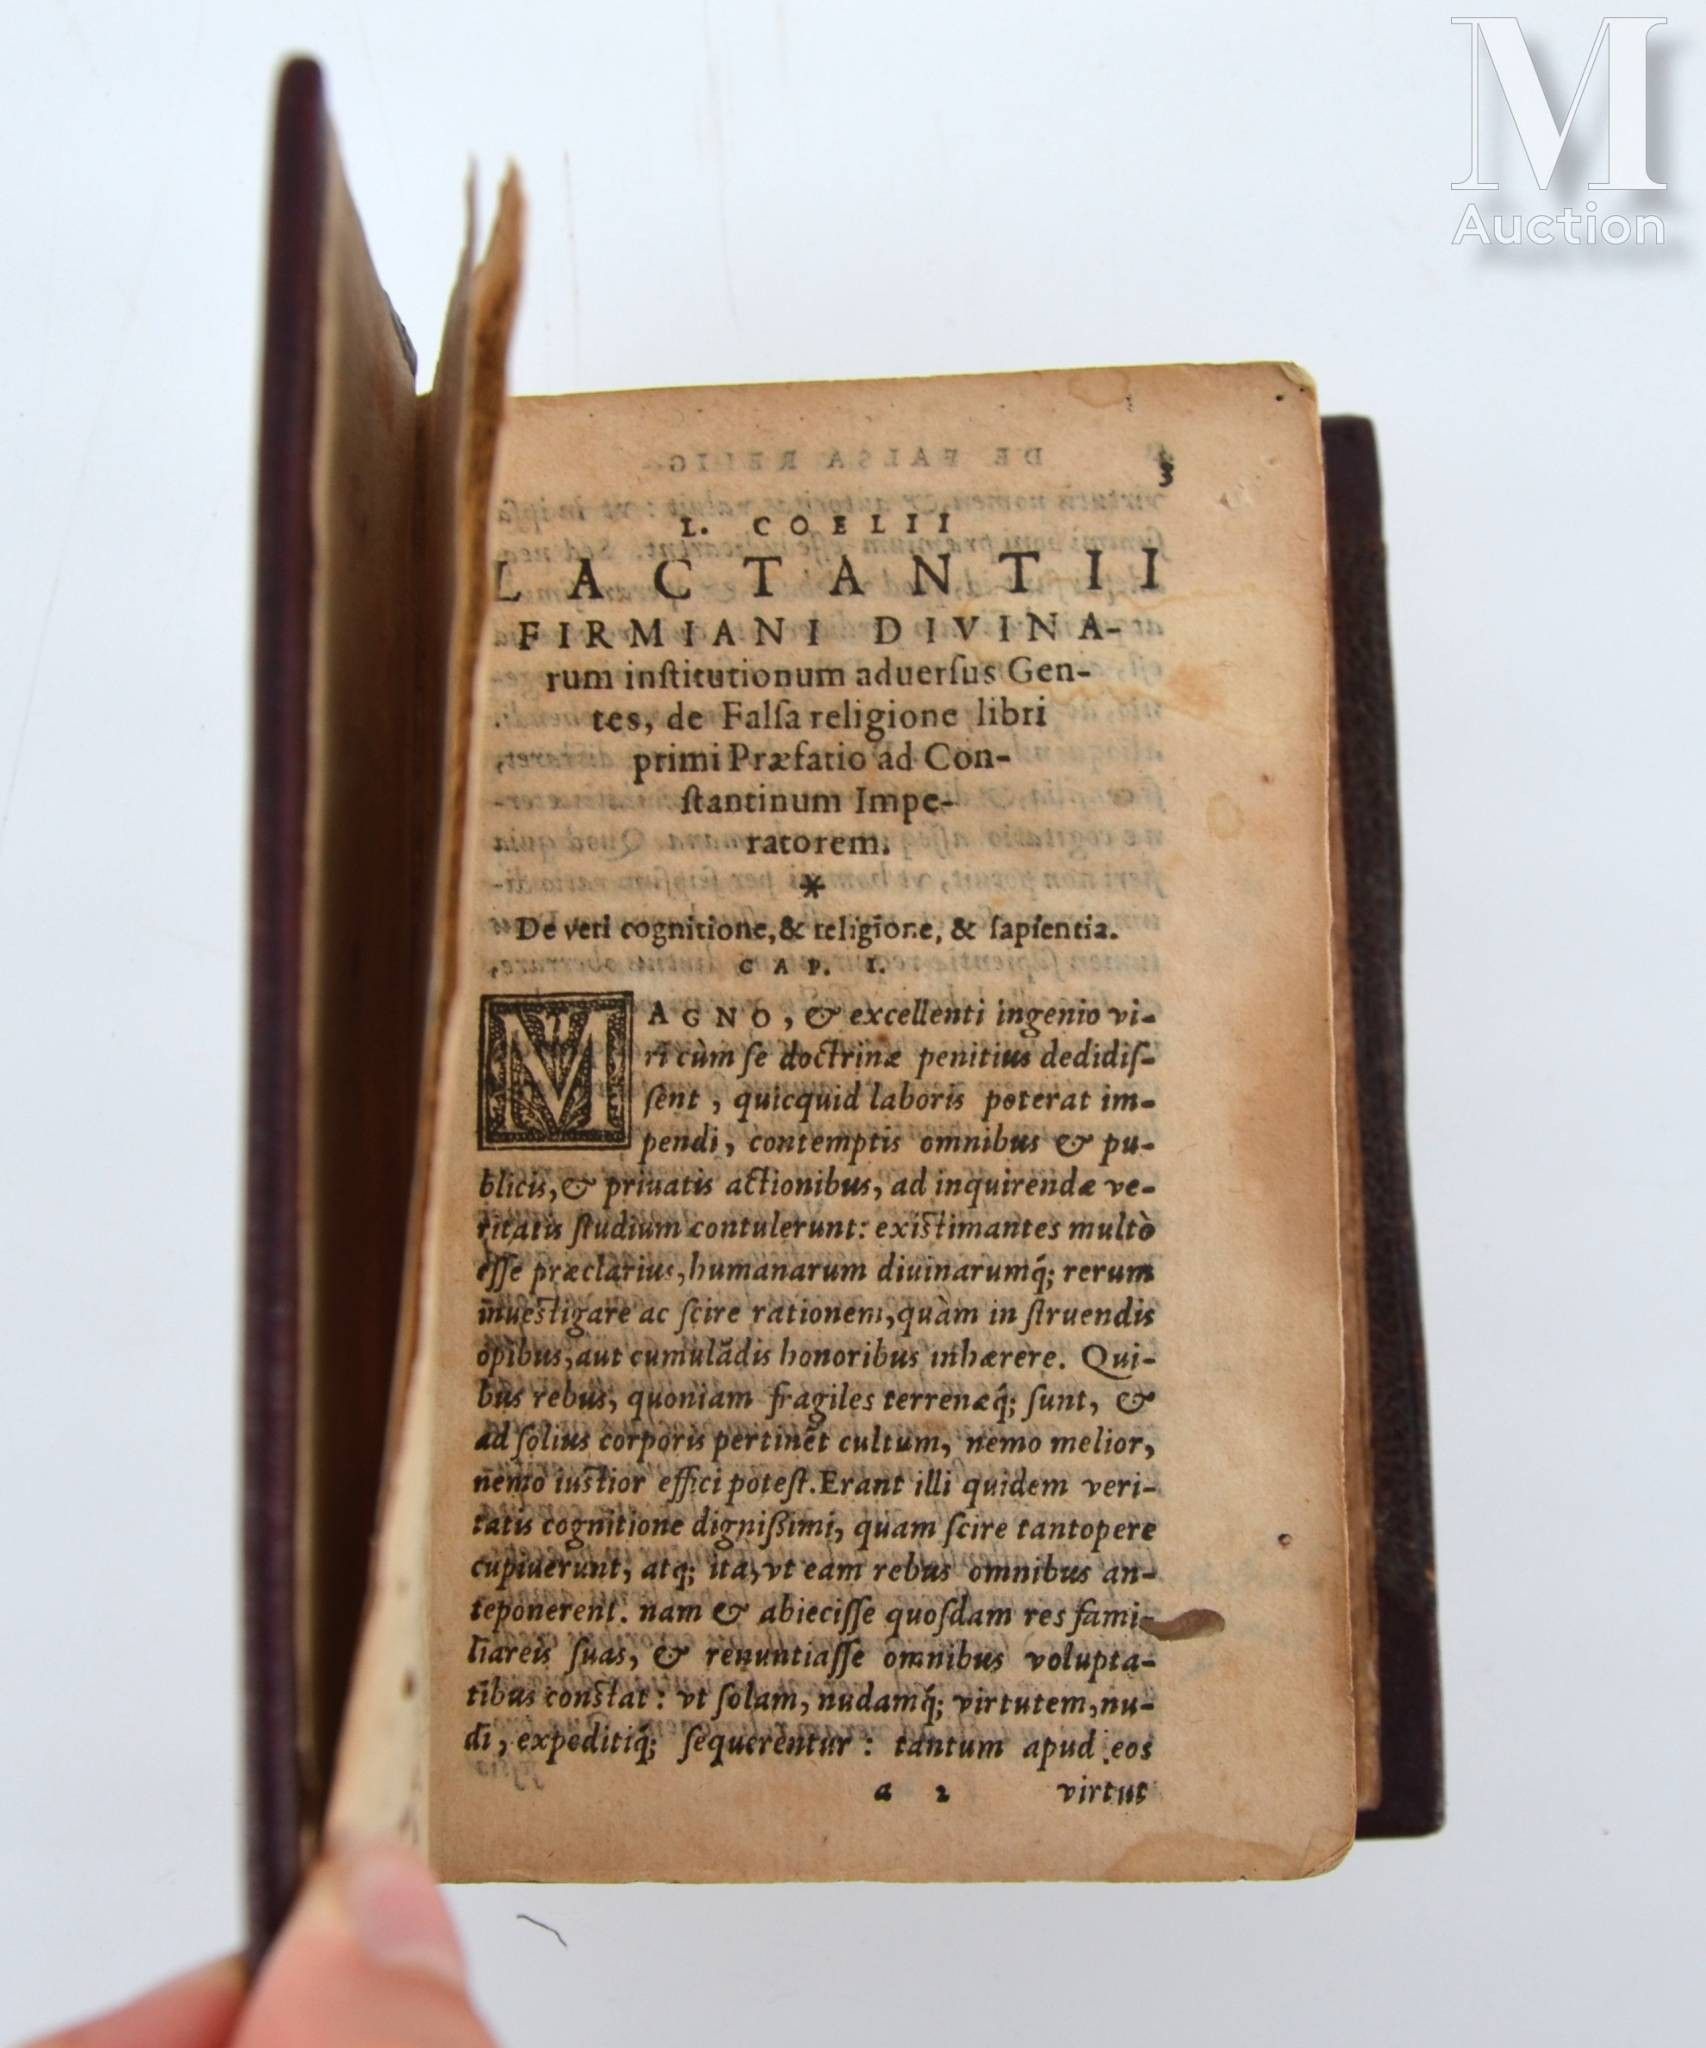 M
Auction
DE FALSA RELIG.
3
L. COELII
LACTANTII
FIRMIANI DIVINA-
rum inſtitutionum aduerſus Gen-
tes, de Falſa religione libri
primi Præfatio ad Con-
ſtantinum Impe-
ratorem.
*
De veri cognitione, & religione, & ſapientia.
CAP. I.
MAGNO, & excellenti ingenio vi-
ri cùm ſe doctrinæ penitius dedidiſ-
ſent, quicquid laboris poterat im-
pendi, contemptis omnibus & pu-
blicis, & priuatis actionibus, ad inquirendæ ve-
ritatis ſtudium contulerunt: existimantes multò
eſſe præclarius, humanarum diuinarumq́; rerum
inuestigare ac ſcire rationem, quàm in ſtruendis
opibus, aut cumulādis honoribus inhærere. Qui-
bus rebus, quoniam fragiles terrenæq́; ſunt, &
ad ſolius corporis pertinēt cultum, nemo melior,
nemo iustior effici poteſt. Erant illi quidem veri-
tatis cognitione digniſsimi, quam ſcire tantopere
cupiuerunt, atq; ita, vt eam rebus omnibus an-
teponerent. nam & abieciſſe quoſdam res fami-
liareis ſuas, & renuntiaſſe omnibus volupta-
tibus constat: vt ſolam, nudamq́; virtutem, nu-
di, expeditiq́; ſequerentur: tantum apud eos
a 2 virtut